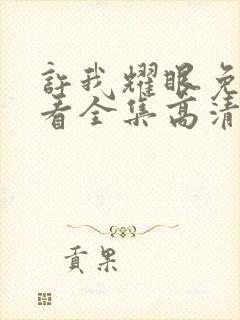 許我耀眼免
看全集高清
貢果